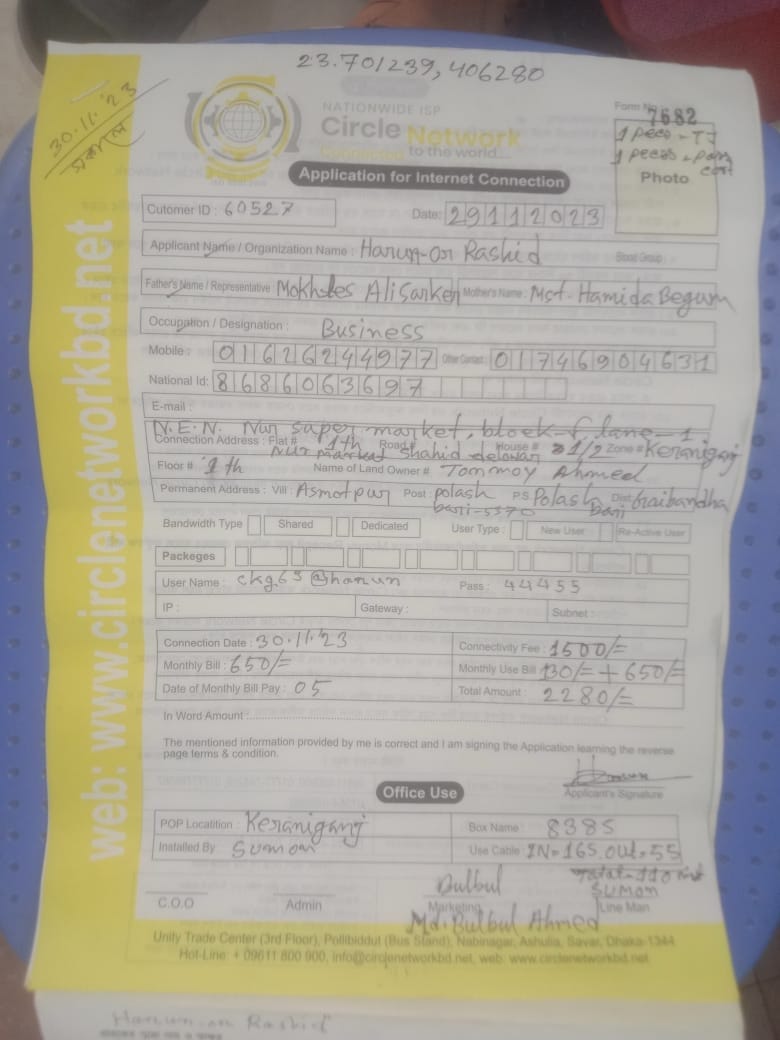 23.701239, 406280
30.11.'23
সকাল
NATIONWIDE ISP
Circle Network
Connected to the world...
Form No
7682
1 peco - TJ
Photo
Application for Internet Connection
Cutomer ID : 60527
Date: 29112023
Applicant Name / Organization Name : Harun-Or Rashid
Blood Group :
Father's Name / Representative Mokhles Ali Sarker Mother's Name : Mst. Hamida Begum
Occupation / Designation : Business
Mobile : 01626244977 Other Contact : 01746904631
National Id: 8686063697
E-mail :
N.E.N. Nur super market, block-f lane-1
Connection Address : Flat # 1th Road # House # 1/2 Zone # Keraniganj
Nur market shahid delowar
Floor # 1th Name of Land Owner # Tommoy Ahmed
Permanent Address : Vill : Asmotpur Post : polash P.S Polash Dist: Gaibandha
bari-5370 bari
Bandwidth Type Shared Dedicated User Type : New User Re-Active User
Packeges
User Name : ckg63@harun Pass : 44455
IP : Gateway : Subnet :
Connection Date : 30.11.'23 Connectivity Fee : 1500/=
Monthly Bill : 650/= Monthly Use Bill 130/= + 650/=
Date of Monthly Bill Pay : 05 Total Amount : 2280/=
In Word Amount :
The mentioned information provided by me is correct and I am signing the Application learning the reverse
page terms & condition.
Applicant's Signature
Office Use
POP Locatition : Keraniganj Box Name : 8385
Installed By : Sumon Use Cable : IN=165. Out=55
Bulbul
SUMON
C.O.O Admin Marketing Line Man
Md. Bulbul Ahmed
Unity Trade Center (3rd Floor), Pollibiddut (Bus Stand), Nabinagar, Ashulia, Savar, Dhaka-1344
Hot-Line: + 09611 800 900, info@circlenetworkbd.net, web: www.circlenetworkbd.net
web: www.circlenetworkbd.net
Harun-or Rashid